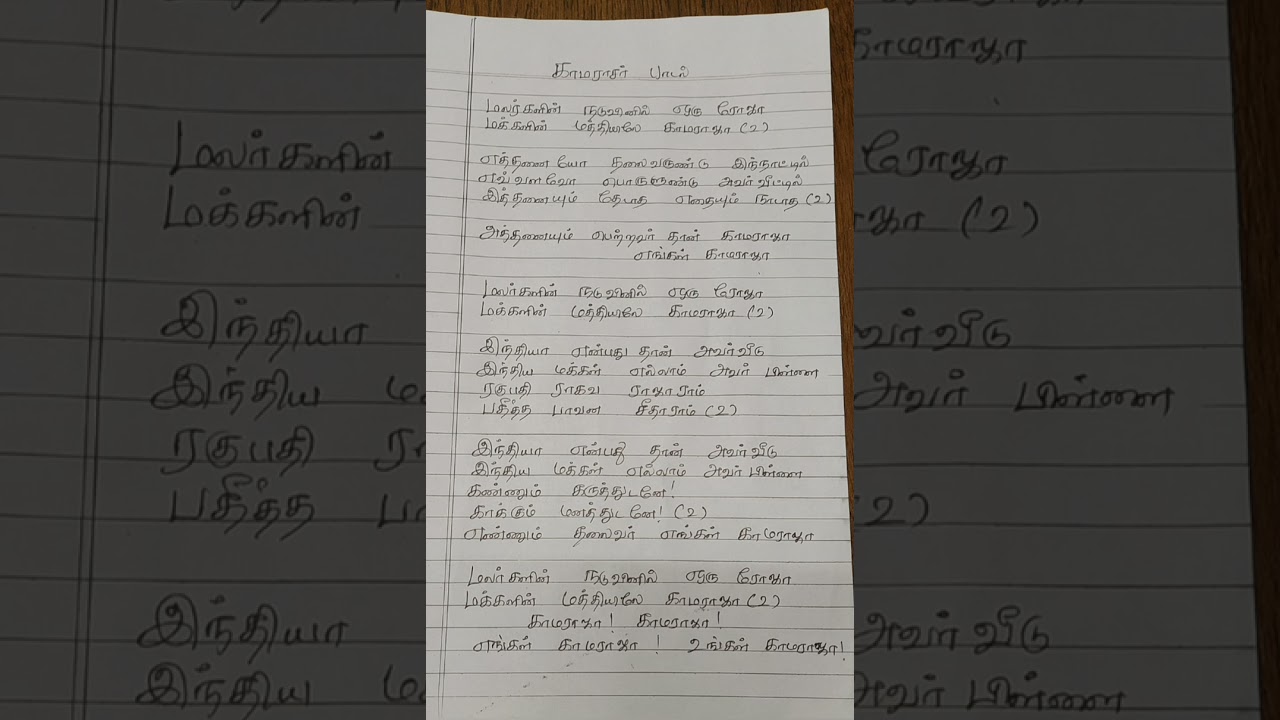 காமராசர் பாடல்
மலர்களின் நடுவினில் ஒரு ரோஜா
மக்களின் மத்தியிலே காமராஜா (2)
எத்தனையோ தலைவருண்டு இந்நாட்டில்
எவ்வளவோ பொருளுண்டு அவர் வீட்டில்
இத்தனையும் தேடாத எதையும் நாடாத (2)
அத்தனையும் பெற்றவர் தான் காமராஜா
எங்கள் காமராஜா
மலர்களின் நடுவினில் ஒரு ரோஜா
மக்களின் மத்தியிலே காமராஜா (2)
இந்தியா என்பது தான் அவர் வீடு
இந்திய மக்கள் எல்லாம் அவர் பின்னை
ரகுபதி ராகவ ராஜாராம்
பதீத்த பாவன சீதாராம் (2)
இந்தியா என்பது தான் அவர் வீடு
இந்திய மக்கள் எல்லாம் அவர் பின்னை
கண்ணும் கருத்துடனே!
காக்கும் மனத்துடனே! (2)
எண்ணும் தலைவர் எங்கள் காமராஜா
மலர்களின் நடுவினில் ஒரு ரோஜா
மக்களின் மத்தியிலே காமராஜா (2)
காமராஜா! காமராஜா!
எங்கள் காமராஜா! உங்கள் காமராஜா!